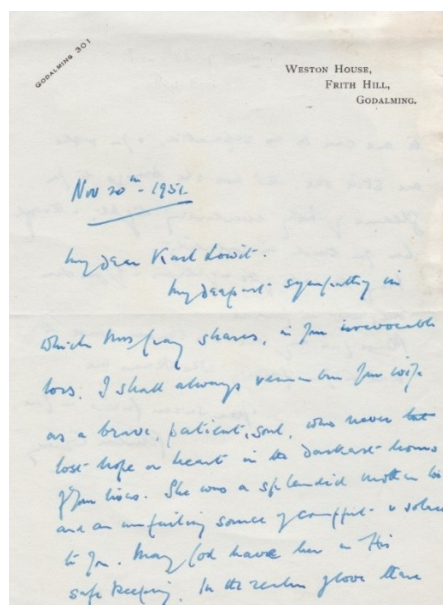 GODALMING 301
WESTON HOUSE,
FRITH HILL,
GODALMING.
Nov 20th - 1951.
My dear Karl Lowit.
My deepest sympathy in
which Mrs Gray shares, in your irrevocable
loss. I shall always remember your wife
as a brave, patient, soul, who never
lost hope or heart in the darkest hours
of your lives. She was a splendid mother
and an unfailing source of comfort & solace
to you. May God have her in His
safe keeping. In the realm above there